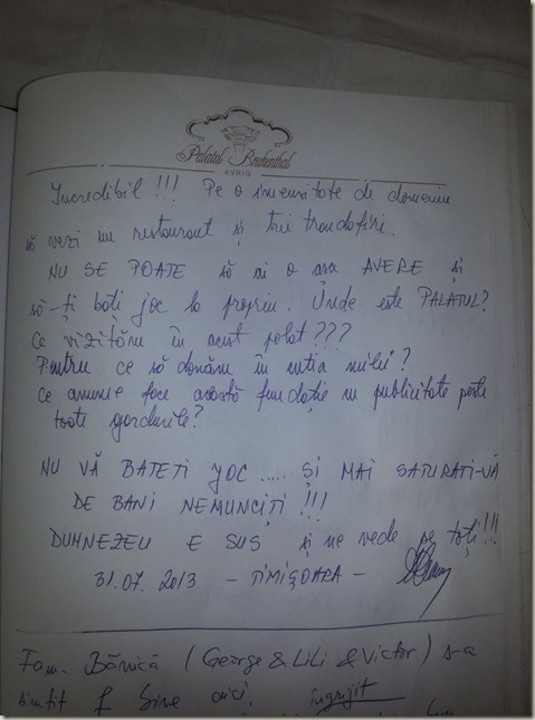 Palatul Brukenthal
AVRIG
Incredibil !!! Pe o imensitate de domeniu
să vezi un restaurant și trei trandafiri.
NU SE POATE să ai o așa AVERE și
să-ți bați joc la propriu. Unde este PALATUL?
Ce vizităm în acest palat ???
Pentru ce să donăm în cutia milei?
Ce anume face această fundație cu publicitate peste
toate gardurile?
NU VĂ BATEȚI JOC ..... ȘI MAI SATURAȚI-VĂ
DE BANI NEMUNCIȚI !!!
DUMNEZEU E SUS și ne vede pe toți!!!
31.07.2013 - TIMIȘOARA -
Fam. Bănică (George & Lili & Victor) s-a
simțit f bine aici, îngrijit